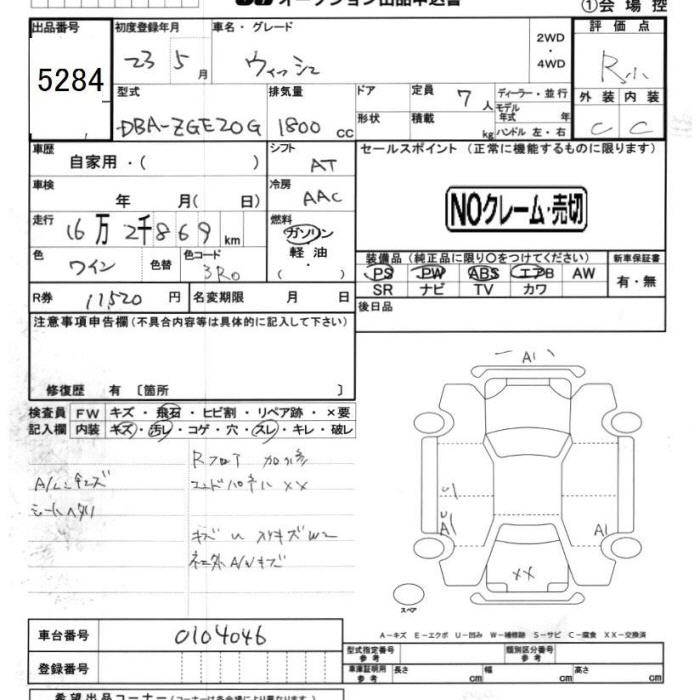 オークション出品申込書
①会場控
出品番号
5284
初度登録年月
23 5月
車名・グレード
ウィッシュ
2WD
・
4WD
評価点
R
外装 内装
C C
型式
DBA-ZGE20G
排気量
1800 cc
ドア
形状
定員 7 人
積載 kg
ディーラー・並行
モデル年式 年
ハンドル 左・右
車歴
自家用・( )
シフト
AT
車検
年 月( 日)
冷房
AAC
走行
16万2千869km
燃料
ガソリン
軽油
・( )
色
ワイン
色替
色コード
3R0
R券 11,520 円
名変期限 月 日
セールスポイント (正常に機能するものに限ります)
NOクレーム・売切
装備品 (純正品に限り〇をつけてください)
PS PW ABS エアB AW
SR ナビ TV カワ
新車保証書
有・無
後日品
注意事項申告欄(不具合内容等は具体的に記入して下さい)
修復歴 有 〔箇所 〕
検査員記入欄
FW キズ・飛石・ヒビ割・リペア跡・×要
内装 キズ・汚レ・コゲ・穴・スレ・キレ・破レ
Rフロア 加修
エンドパネル XX
シートヘタリ
キズ U スリキズ W2
社外A/Wキズ
A1
U1
U1
A1
A1
XX
スペア
A-キズ E-エクボ U-凹み W-補修跡 S-サビ C-腐食 XX-交換済
車台番号 0104046
登録番号
型式指定番号 参考
類別区分番号 参考
車庫証明用 参考 長さ cm 幅 cm 高さ cm
希望出品コーナー